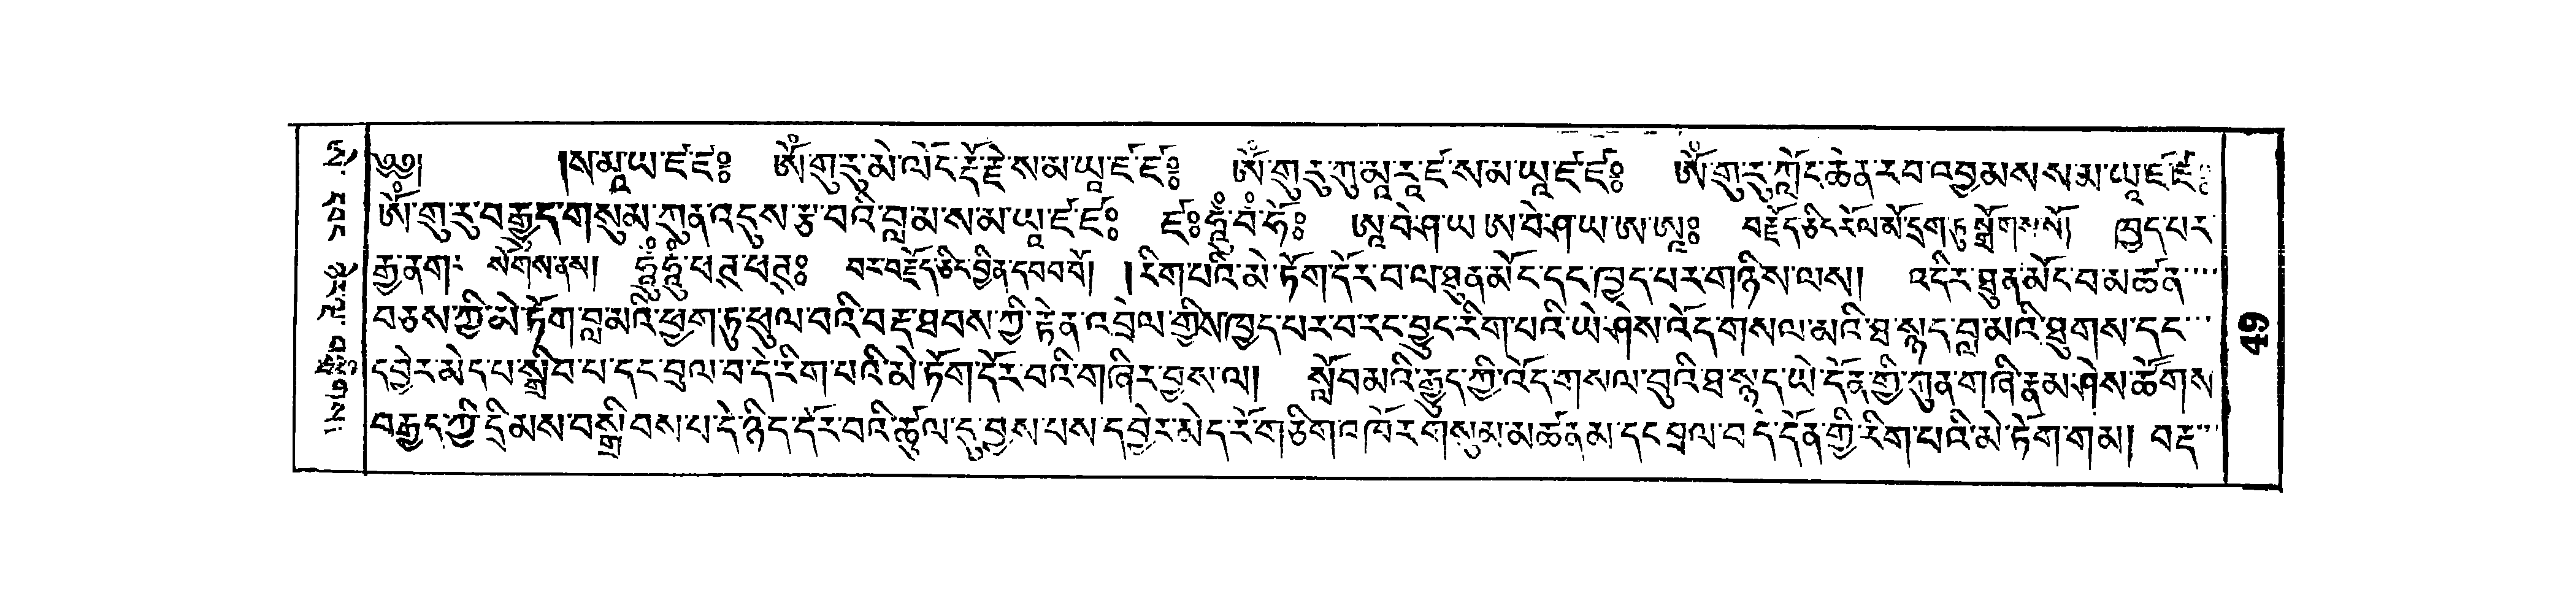 ༄༅། །ས་མཱ་ཡ་ཛ་ཛཿ ཨོཾ་གུ་རུ་མེ་ལོང་རྡོ་རྗེ་ས་མ་ཡཱ་ཛ་ཛཿ ཨོཾ་གུ་རུ་ཀུ་མཱ་རཱ་ཛ་ས་མ་ཡཱ་ཛ་ཛཿ ཨོཾ་གུ་རུ་ཀློང་ཆེན་རབ་འབྱམས་ས་མ་ཡཱ་ཛ་ཛཿ
ཨོཾ་གུ་རུ་བརྒྱུད་གསུམ་ཀུན་འདུས་རྩ་བའི་བླ་མ་ས་མ་ཡཱ་ཛ་ཛཿ ཛཿཧཱུྃ་བཾ་ཧོཿ ཨཱ་བེ་ཤ་ཡ་ཨ་བེ་ཤ་ཡ་ཨ་ཨཱཿ བརྗོད་ཅིང་རོལ་མོ་དྲག་ཏུ་སྒྲོགས་སོ། ཁྱད་པར་
རྒྱ་ནག་ སོགོས་ནས། ཧཱུྃ་ཧཱུྃ་ཕཊ་ཕཊཿ བར་བརྗོད་ཅིང་བྱིན་དབབ་བོ། །རིག་པའི་མེ་ཏོག་དོར་བ་ལ་ཐུན་མོང་དང་ཁྱད་པར་གཉིས་ལས། འདིར་ཐུན་མོང་བ་མཚན་
བཅས་ཀྱི་མེ་ཏོག་བླ་མའི་ཕྱག་ཏུ་ཕུལ་བའི་བརྡ་ཐབས་ཀྱི་རྟེན་འབྲེལ་གྱིས་ཁྱད་པར་བ་རང་བྱུང་རིག་པའི་ཡེ་ཤེས་འོད་གསལ་མའི་ཐ་སྙད་བླ་མའི་ཐུགས་དང་
དབྱེར་མེད་པ་སྒྲིབ་པ་དང་བྲལ་བ་དེ་རིག་པའི་མེ་ཏོག་དོར་བའི་གཞིར་བྱས་ལ། སློབ་མའི་རྒྱུད་ཀྱི་འོད་གསལ་བུའི་ཐ་སྙད་ཡེ་དོན་གྱི་ཀུན་གཞི་རྣམ་ཤེས་ཚོགས་
བརྒྱད་ཀྱི་དྲི་མས་བསྒྲིབས་པ་དེ་ཉིད་དོར་བའི་ཚུལ་དུ་བྱས་པས་དབྱེར་མེད་རོ་གཅིག་འཁོར་གསུམ་མཚན་མ་དང་བྲལ་བ་དེ་དོན་གྱི་རིག་པའི་མེ་ཏོག་གམ། བརྡ་